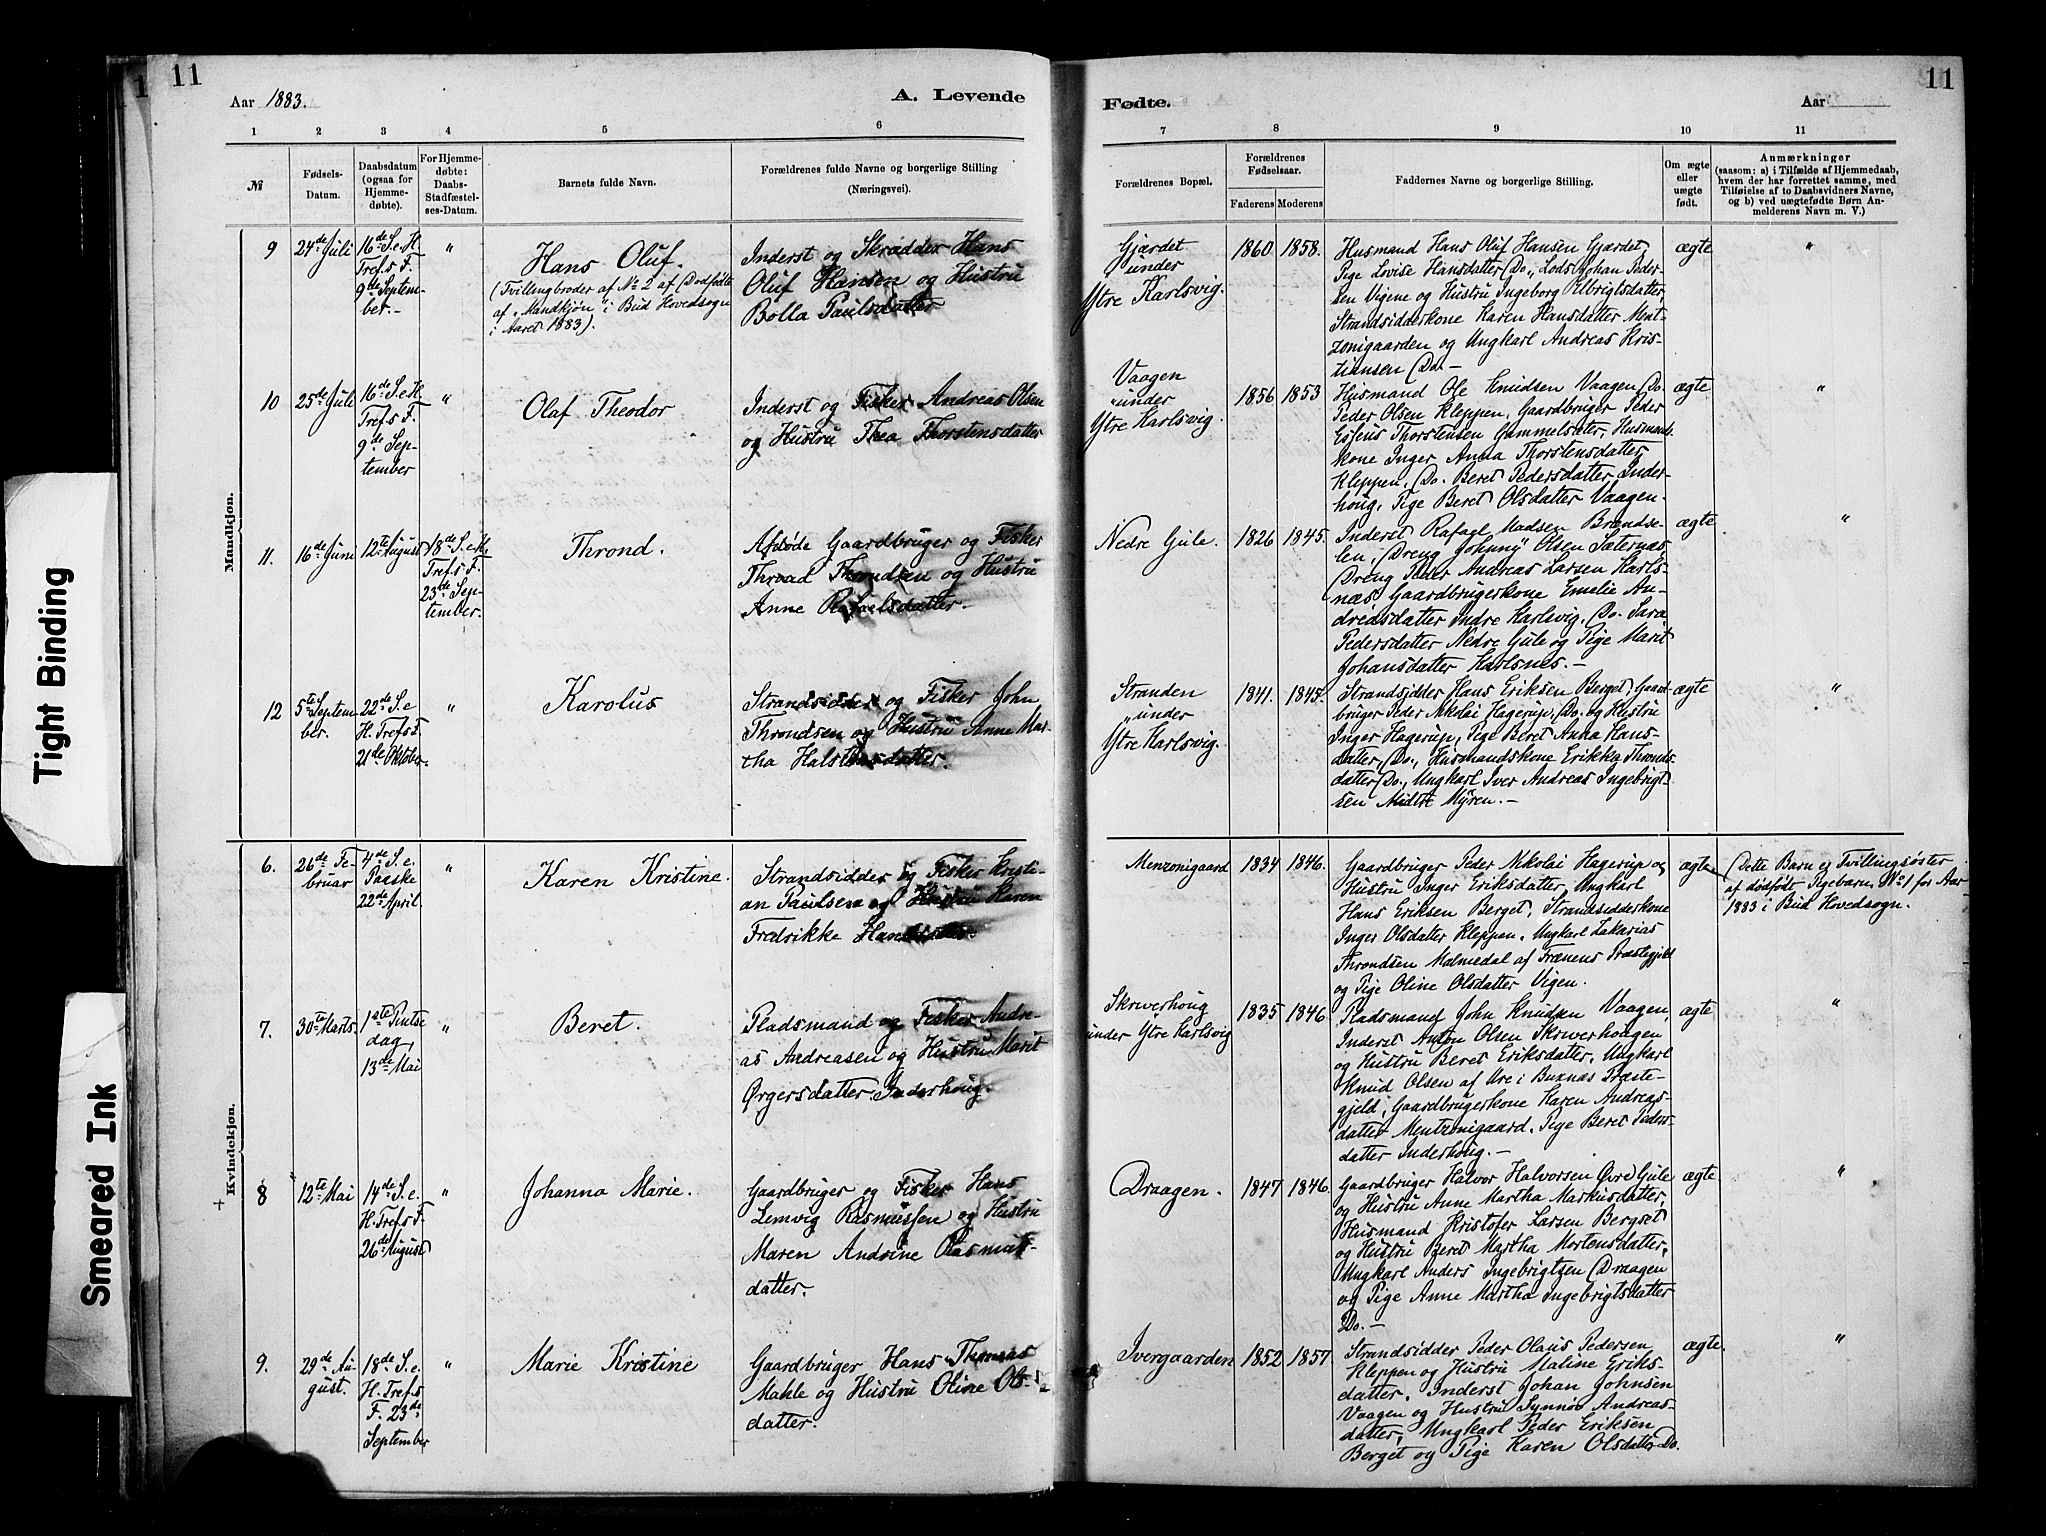 11
Aar 1883.
A. Levende
1 2 3 4 5 6
№
Fødsels-
Datum.
Daabsdatum
(ogsaa for
Hjemme-
døbte).
For Hjemme-
døbte:
Daabs-
Stadfæstel-
ses-Datum.
Barnets fulde Navn.
Forældrenes fulde Navne og borgerlige Stilling
(Næringsvei).
Mandkjøn.
9
24de Juli
16de S. e. H.
Tref.s F.
9de Septem-
ber.-
"
Hans Oluf
(Tvillingbroder af No 2 af Dødfødte
af "Mandkjøn" i Bud Hovedsogn
i Aaret 1883).
Inderst og Skrædder Hans
Oluf Hansen og Hustru
Bolla Paulsdatter
10
25de Juli
16de S. e. H.
Tref.s F.
9de Sep-
tember
"
Olaf Theodor
Inderst og Fisker Andreas Olsen
og Hustru Thea Thorstensdatter
11.
16de Juni
12te August
18de S. e. H.
Tref.s F.
23de Sep-
tember.
Thrond.
Afdøde Gaardbruger og Fisker
Throad Throndsen og Hustru
Anne Rafaelsdatter.-
12
5te Septem
ber.
22de S. e
H. Tref.s F.
21de Oktober.
"
Karolus
Strandsidder og Fisker John
Throndsen og Hustru Anne Mar-
tha Halstensdatter.
Kvindekjøn.
6.
26de Fe-
bruar
4de S. e.
Paaske
22de April.
"
Karen Kristine.
Strandsidder og Fisker Kristi-
an Paulsen og Hustru Karen
Fredrikke Hansdatter
7.
30te Marts
1ste Pintse
dag,
13de Mai
"
Beret.
Pladsmand og Fisker Andre-
as Andreasen og Hustru Marit
Ørgersdatter Inderhoug.
+
8
12te Mai
14de S. e.
H. Tref.s F.
26de August
"
Johanna Marie.
Gaardbruger og Fisker Hans
Lemvig Rasmussen og Hustru
Maren Andrine Rasmus-
datter.
9.
29de Au-
gust.
18de S. e.
H. Tref.s
F. 23de
September
"
Marie Kristine
Gaardbruger Hans Thomas
Mahle og Hustru Oline Ols-
datter.
11
Fødte.
Aar
7 8 9 10 11
Forældrenes Bopæl.
Forældrenes
Fødselsaar.
Faderens Moderens
Faddernes Navne og borgerlige Stilling.
Om ægte
eller
uægte
født.
Anmærkninger
(saasom: a) i Tilfælde af Hjemmedaab,
hvem der har forrettet samme, med
Tilføielse af to Daabsvidners Navne,
og b) ved uægtefødte Børn An-
melderens Navn m. V.)
Gjærdet
under
Ytre Karlsvig.
1860 1858.
Husmand Hans Oluf Hansen Gjærdet,
Pige Lovise Hansdatter Do., Lods Johan Peder-
sen Vigene og Hustru Ingeborg Elbrigtsdatter,
Strandsidderkone Karen Hansdatter Ment-
zonigaarden og Ungkarl Andreas Kris-
tiansen Do.-
ægte
"
Vaagen
under
Ytre Karlsvig.
1856 1853
Husmand Ole Knudsen Vaagen, Do.
Peder Olsen Kleppen, Gaardbruger Peder
Esseus Thorstensen Gammelsæter, Husmands-
kone Inger Anna Thorstensdatter
Kleppen, Do. Beret Pedersdatter Inder-
houg, Pige Beret Olsdatter Vaagen.
ægte
"
Nedre Gule.
1826 1845.
Inderst Rafael Madsen Brandse-
len, Dreng Johnny Olsen Sæternæs,
Dreng Peder Andreas Larsen Karls-
næs Gaardbrugerkone Emelie An-
dreasdatter Indre Karlsvig, Do. Sara
Pedersdatter Nedre Gule og Pige Marit
Johansdatter Karlsnes.-
ægte
"
Stranden
under
Ytre Karlsvig.
1841. 1845.
Strandsidder Hans Eriksen Berget, Gaard-
bruger Peder Nikolai Hagerup, Do. og Hustru
Inger Hagerup, Pige Beret Anna Hans-
datter, Do., Husmandskone Erikka Thronds-
datter Do., Ungkarl Iver Andreas Ingebrigt-
sen Midtre Myren.-
ægte
"
Menzonigaard
1834 1846.
Gaardbruger Peder Nikolai Hagerup og
Hustru Inger Eriksdatter, Ungkarl
Hans Eriksen Berget, Strandsidderkone
Inger Olsdatter Kleppen, Ungkarl Zakarias
Throndsen Malmedal af Frænens Præstegjeld
og Pige Oline Olsdatter Vigen.
ægte
Dette Barn er Tvillingsøster
af dødfødt Pigebarn No 1 for Aar
1883 i Bud Hovedsogn.
Skriverhoug
under Ytre Karlsvig
1835 1846
Pladsmand John Knudsen Vaagen,
Inderst Anton Olsen Skriverhougen
og Hustru Beret Eriksdatter, Ungkarl
Knud Olsen af Ure i Buxnæs Præste-
gjeld, Gaardbrugerkone Karen Andreas-
datter Mentzonigaard, Pige Beret Peders-
datter Inderhoug.-
ægte
"
Draagen.
1847 1846.
Gaardbruger Halvor Halvorsen Øvre Gule
og Hustru Anne Martha Markusdatter,
Husmand Kristofer Larsen Bergset
og Hustru Beret Martha Mortensdatter,
Ungkarl Anders Ingebrigtsen Draagen
og Pige Anne Martha Ingebrigtsdatter
Do.-
ægte
"
Ivergaarden
1852 1857.
Strandsidder Peder Olaus Pedersen
Kleppen og Hustru Maline Eriks-
datter, Inderst Johan Johnsen
Vaagen og Hustru Synnøv Andreas-
datter, Ungkarl Peder Eriksen
Berget og Pige Karen Olsdatter Do.
ægte.
"
Tight Binding
Smeared Ink